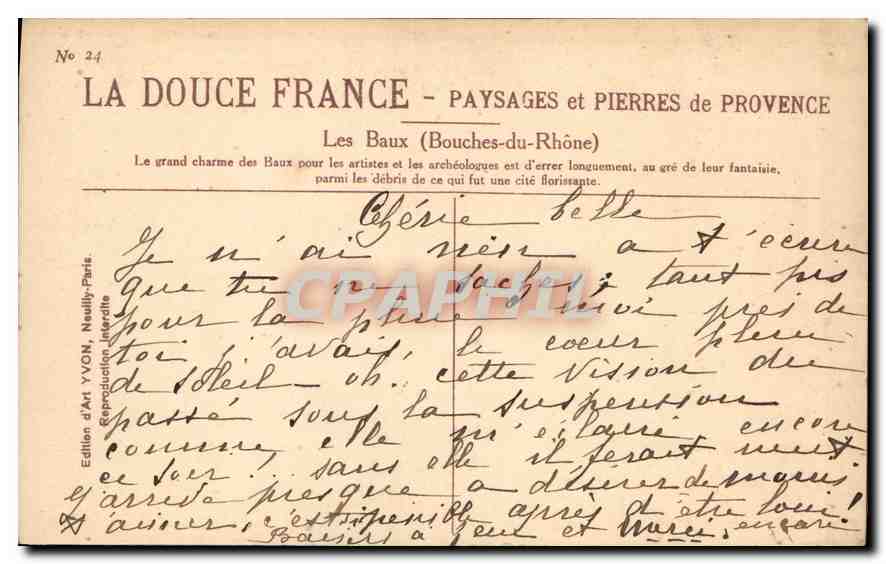 No 24
LA DOUCE FRANCE - PAYSAGES et PIERRES de PROVENCE
Les Baux (Bouches-du-Rhône)
Le grand charme des Baux pour les artistes et les archéologues est d'errer longuement, au gré de leur fantaisie,
parmi les débris de ce qui fut une cité florissante.
Edition d'Art YVON, Neuilly-Paris.
Reproduction Interdite
CPAPHIL
Chérie belle
Je n'ai rien a t'écrire
que tu ne saches; tant pis
pour la pluie, moi près de
toi j'avais, le coeur plein
de soleil - oh. cette vision du
passé sous la suspension
comme elle m'éclaire encore
ce soir! sans elle il ferait nuit
J'arrive presque a désirer de moins
t'aimer, c'est pénible après et être loin!
Baisers a et merci, encore